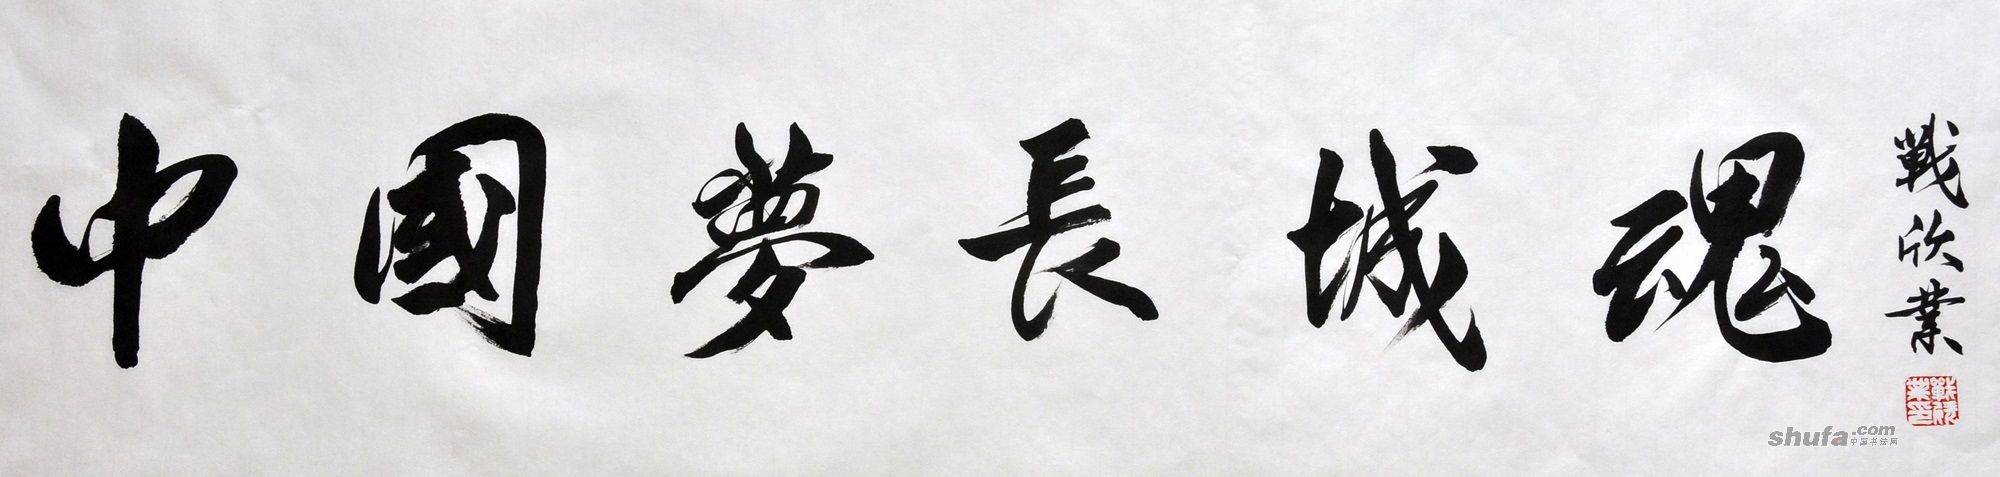 中國夢長城魂
戰欣業
戰欣業印
shufa.com
中国书法网